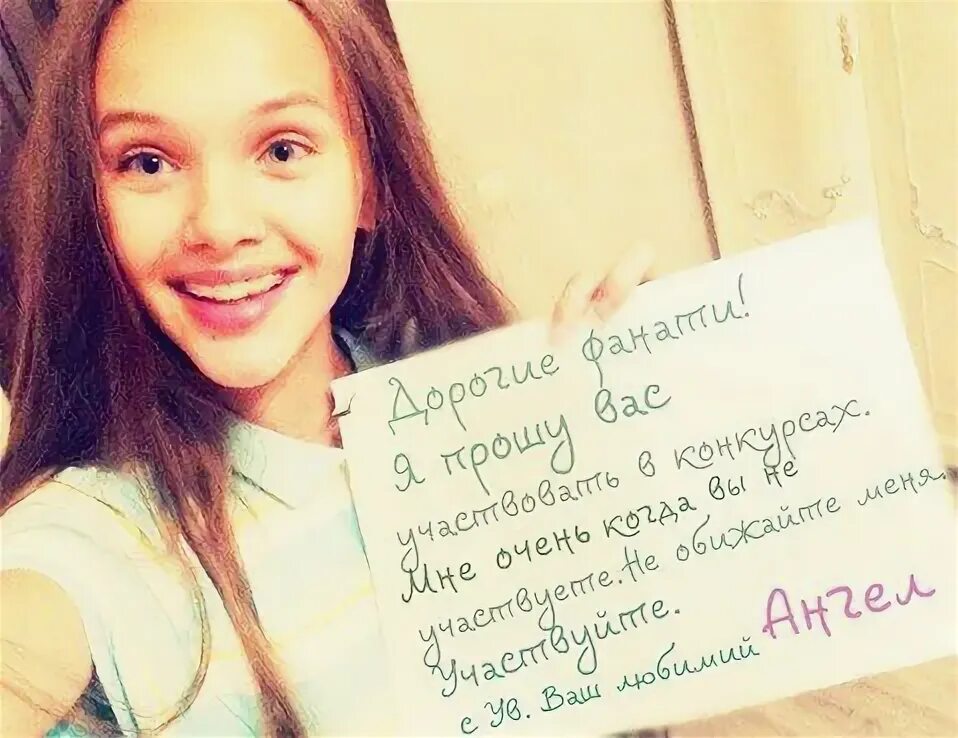 Дорогие фанати!
Я прошу вас
участвовать в конкурсах.
Мне очень когда вы не
участвуете. Не обижайте меня.
Участвуйте.
с Ув. Ваш любимий Ангел